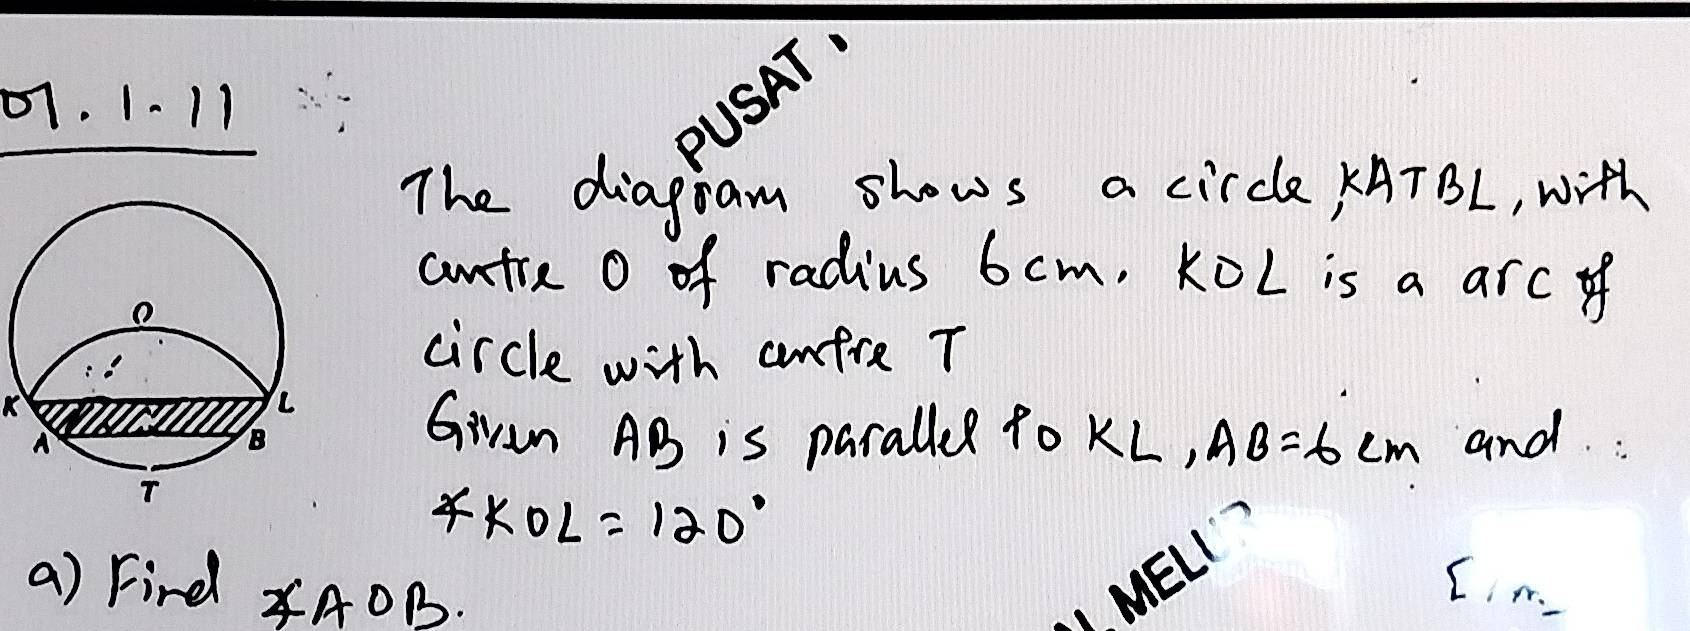 07.1.11
PUSAT
The diagram shows a circle, KATBL, with
centre O of radius 6cm. KOL is a arc of
circle with centre T
Given AB is parallel to KL, AB=6cm and
∡KOL = 120°
O
K
L
A
B
T
a) Find ∡AOB.
MELUR